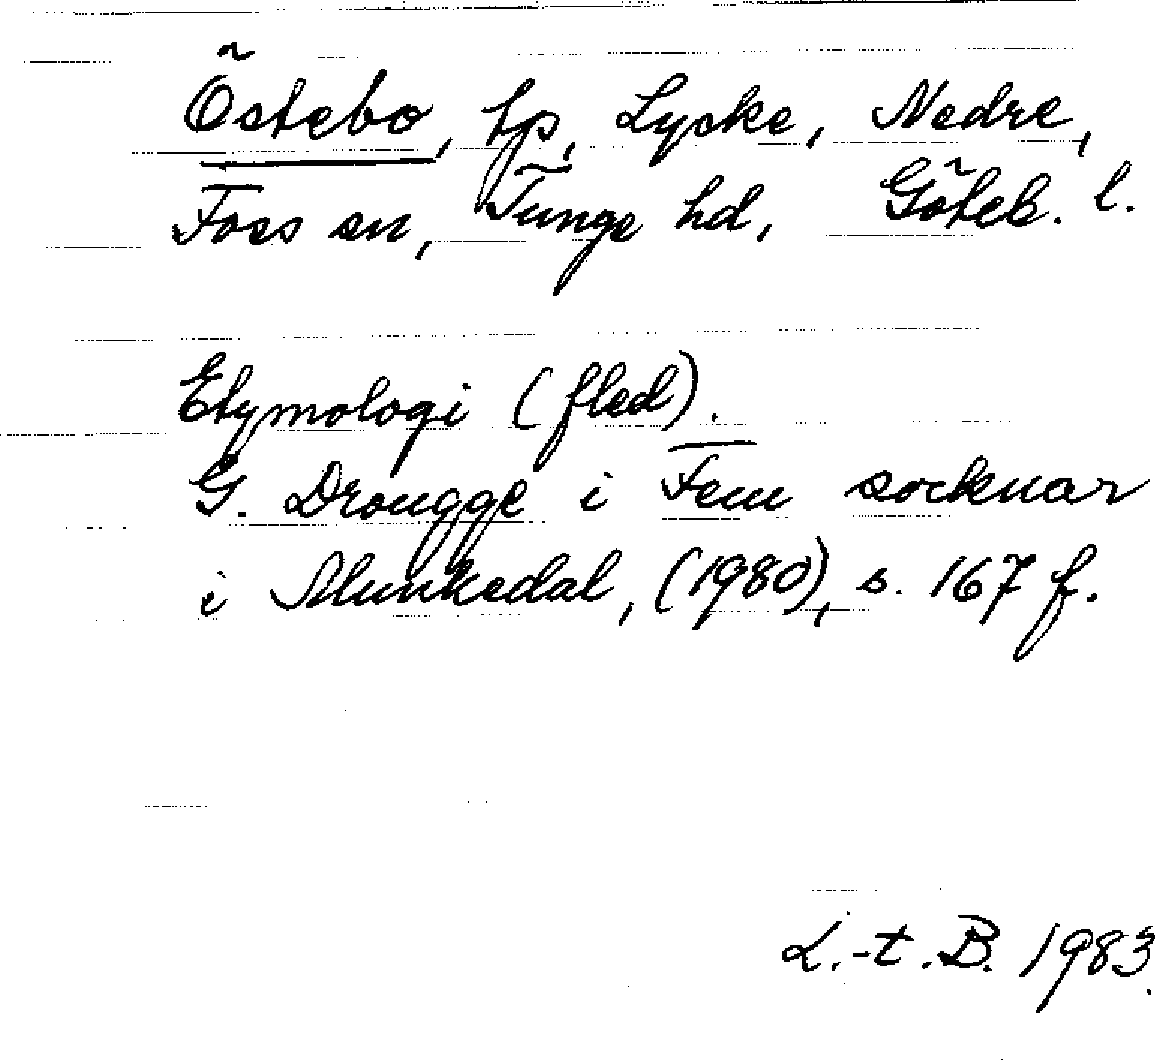 Östebo, tp, Lycke, Nedre,
Foss sn, Tunge hd, Göteb. l.
Etymologi (fled).
G. Drougge i Fem socknar
i Munkedal, (1980), s. 167 f.
L.-t. B. 1983.